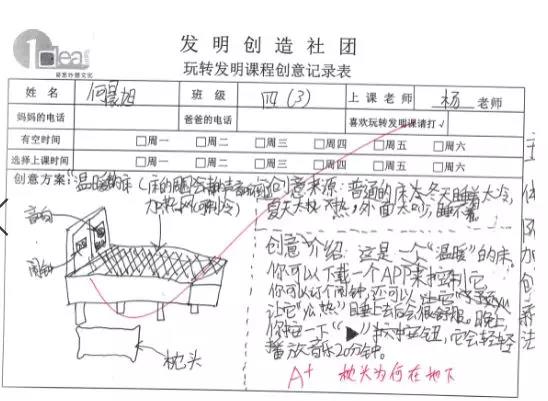 1 Idea
易思妙想文化
发明创造社团
玩转发明课程创意记录表
姓名 何晨旭 班级 四(3) 上课老师 杨 老师
妈妈的电话 爸爸的电话 喜欢玩转发明课请打√
有空时间 □周一 □周二 □周三 □周四 □周五 □周六
选择上课时间 □周一 □周二 □周三 □周四 □周五 □周六
创意方案：“温暖的床(床的腿会 创意来源：普通的床冬天睡着太冷，
加热 制冷) 夏天太热，外面太吵，睡不着
音响
闹钟
枕头
创意介绍：这是一个“温暖”的床，
你可以下载一个APP来控制它
你可以订个闹钟，还可以让它
让它“加热”，睡上去后会很舒服。晚上，
你按一下“▶”按钮，它会轻轻
播放音乐20分钟。
A+ 枕头为何在地下